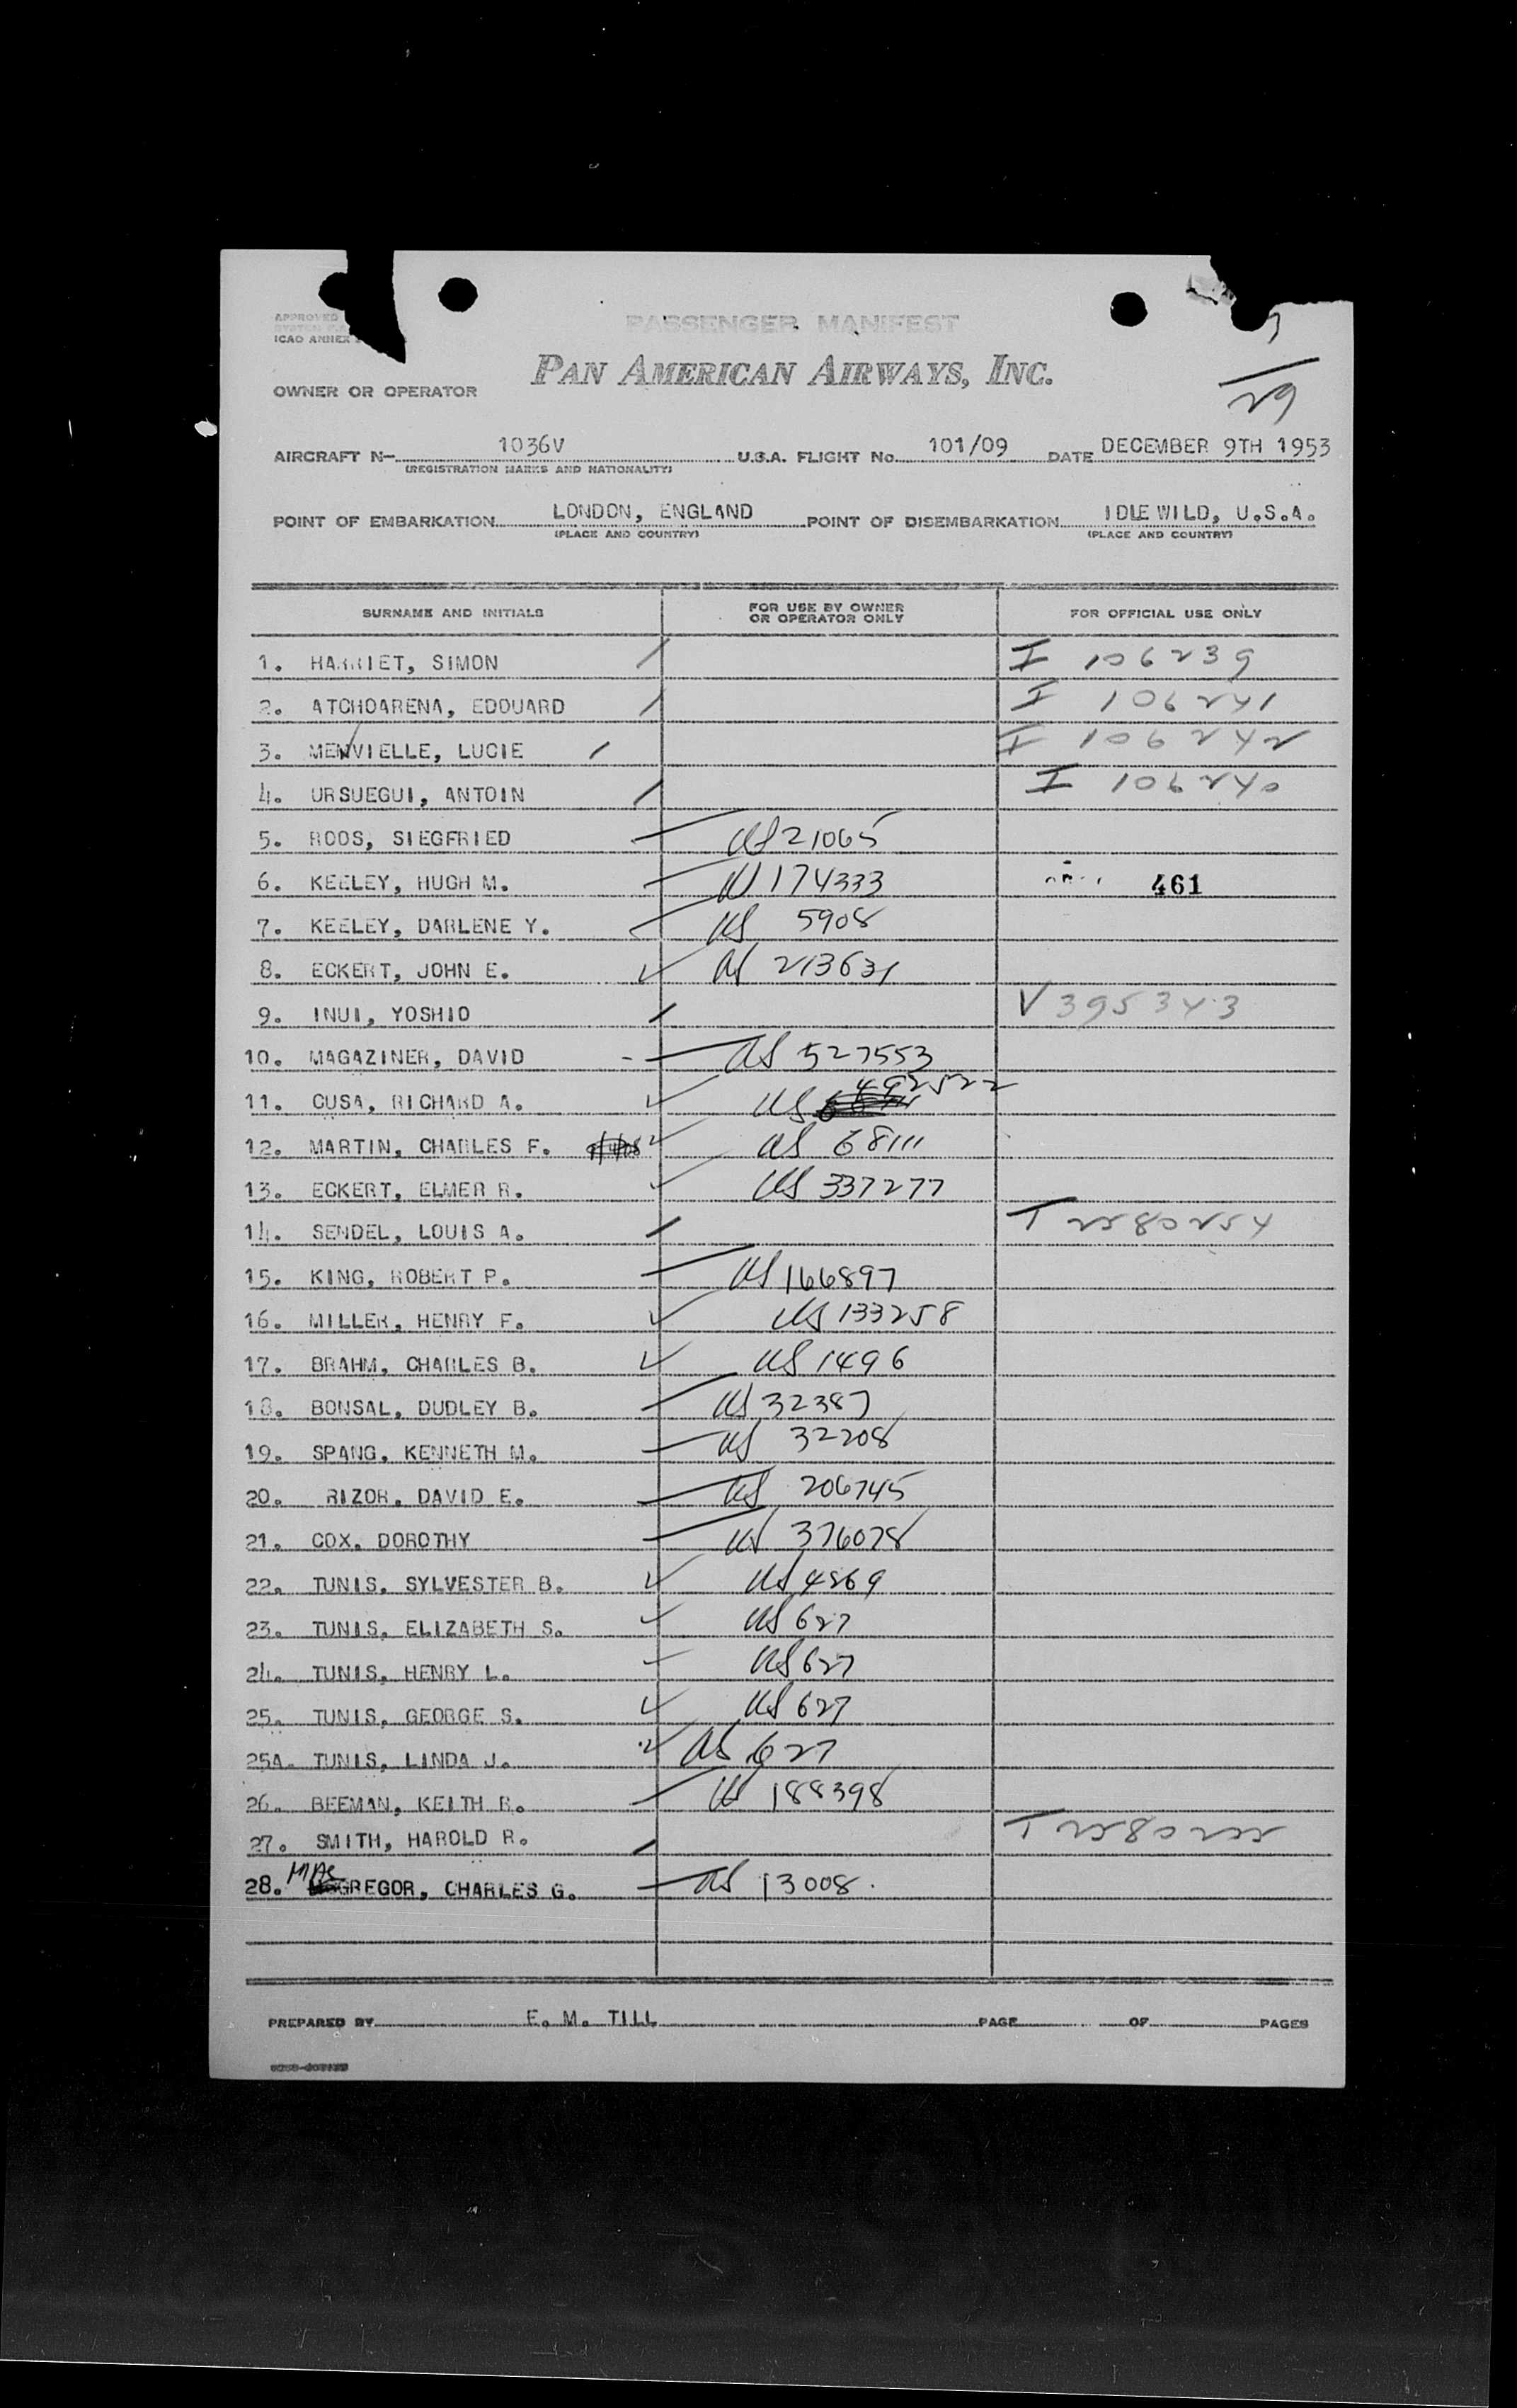 APPROVED
ICAO ANNEX
PASSENGER MANIFEST
PAN AMERICAN AIRWAYS, INC.
OWNER OR OPERATOR
29
AIRCRAFT N- 1036V U.S.A. FLIGHT No. 101/09 DATE DECEMBER 9TH 1953
(REGISTRATION MARKS AND NATIONALITY)
POINT OF EMBARKATION LONDON, ENGLAND POINT OF DISEMBARKATION IDLEWILD, U.S.A.
(PLACE AND COUNTRY) (PLACE AND COUNTRY)
SURNAME AND INITIALS FOR USE BY OWNER OR OPERATOR ONLY FOR OFFICIAL USE ONLY
1. HARRIET, SIMON I 106239
2. ATCHOARENA, EDOUARD I 106241
3. MENVIELLE, LUCIE I 106242
4. URSUEGUI, ANTOIN I 106240
5. ROOS, SIEGFRIED US 21065
6. KEELEY, HUGH M. US 174333 461
7. KEELEY, DARLENE Y. US 5908
8. ECKERT, JOHN E. US 213631
9. INUI, YOSHIO V 395343
10. MAGAZINER, DAVID US 527553
11. CUSA, RICHARD A. US 492522
12. MARTIN, CHARLES F. US 68111
13. ECKERT, ELMER R. US 337277
14. SENDEL, LOUIS A. T 2280254
15. KING, ROBERT P. US 166897
16. MILLER, HENRY F. US 133258
17. BRAHM, CHARLES B. US 1496
18. BONSAL, DUDLEY B. US 32387
19. SPANG, KENNETH M. US 32208
20. RIZOR, DAVID E. US 206745
21. COX, DOROTHY US 376078
22. TUNIS, SYLVESTER B. US 4869
23. TUNIS, ELIZABETH S. US 627
24. TUNIS, HENRY L. US 627
25. TUNIS, GEORGE S. US 627
25A. TUNIS, LINDA J. US 627
26. BEEMAN, KEITH R. US 188398
27. SMITH, HAROLD R. T 2280222
28. MACGREGOR, CHARLES G. US 13008.
PREPARED BY E. M. TILL PAGE OF PAGES